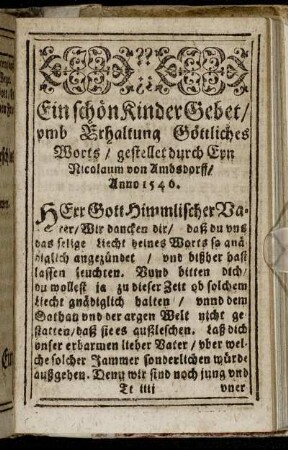 Ein schön Kinder Gebet /
vmb Erhaltung Göttliches
Worts / gestellet durch Ern
Nicolaum von Ambsdorff /
Anno 1546.
HErr Gott Himmlischer Va-
ter / Wir dancken dir / daß du vns
das selige Liecht deines Worts so gnä
diglich angezündet / vnd bißher hast
lassen leuchten. Vnnd bitten dich /
du wollest ja zu dieser Zeit ob solchem
Liecht gnädiglich halten / vnnd dem
Sathan vnd der argen Welt nicht ge
statten / daß sie es außleschen. Laß dich
vnser erbarmen lieber Vater / vber wel-
che solcher Jammer sonderlichen würde
außgehen. Denn wir sind noch jung vnd
Tt iiij vner